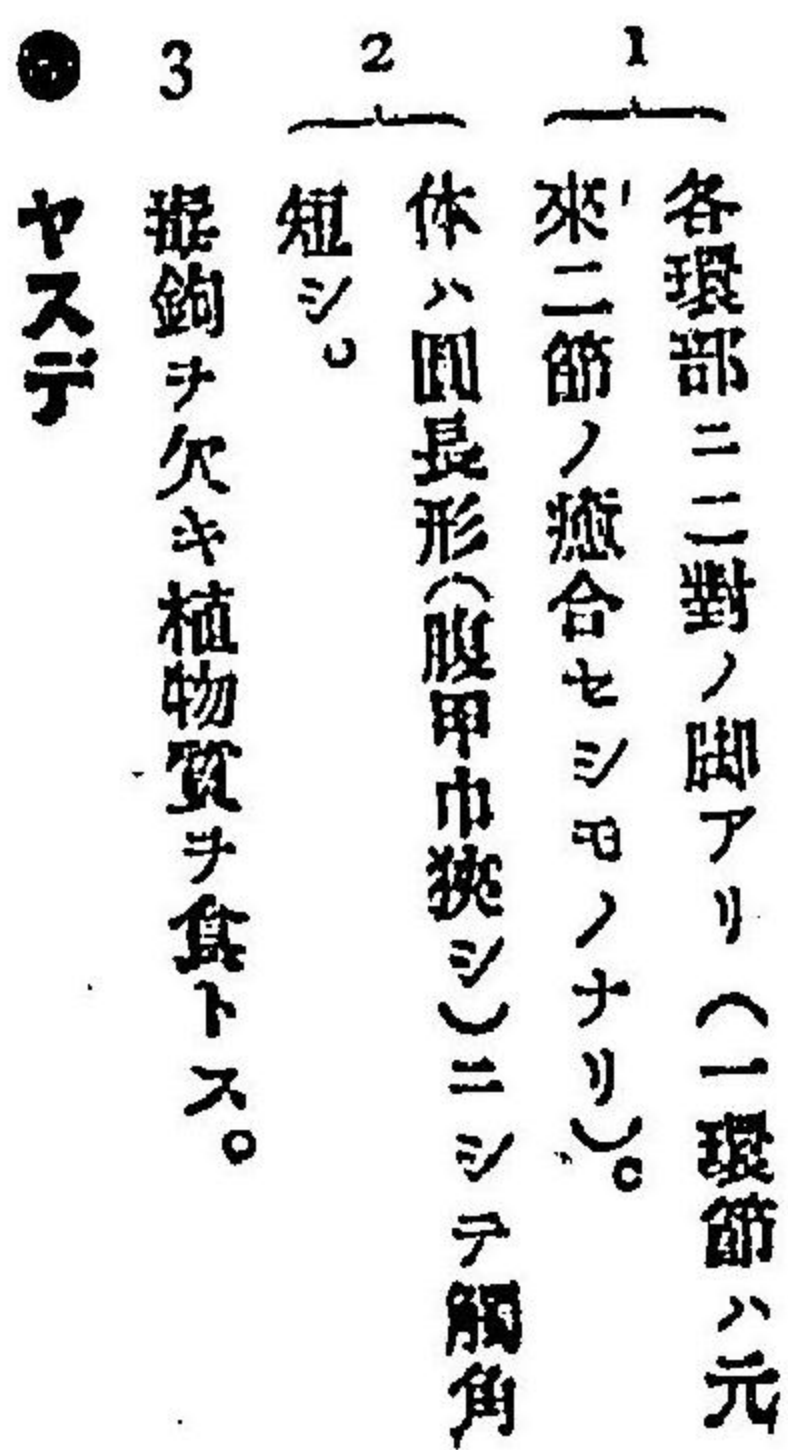 1 各環部ニ二對ノ脚アリ(一環節ハ元
來二節ノ癒合セシモノナリ)。
2 体ハ圓長形(腹甲巾狹シ)ニシテ觸角
短シ。
3 鉤ヲ欠キ植物質ヲ食トス。
● ヤスデ